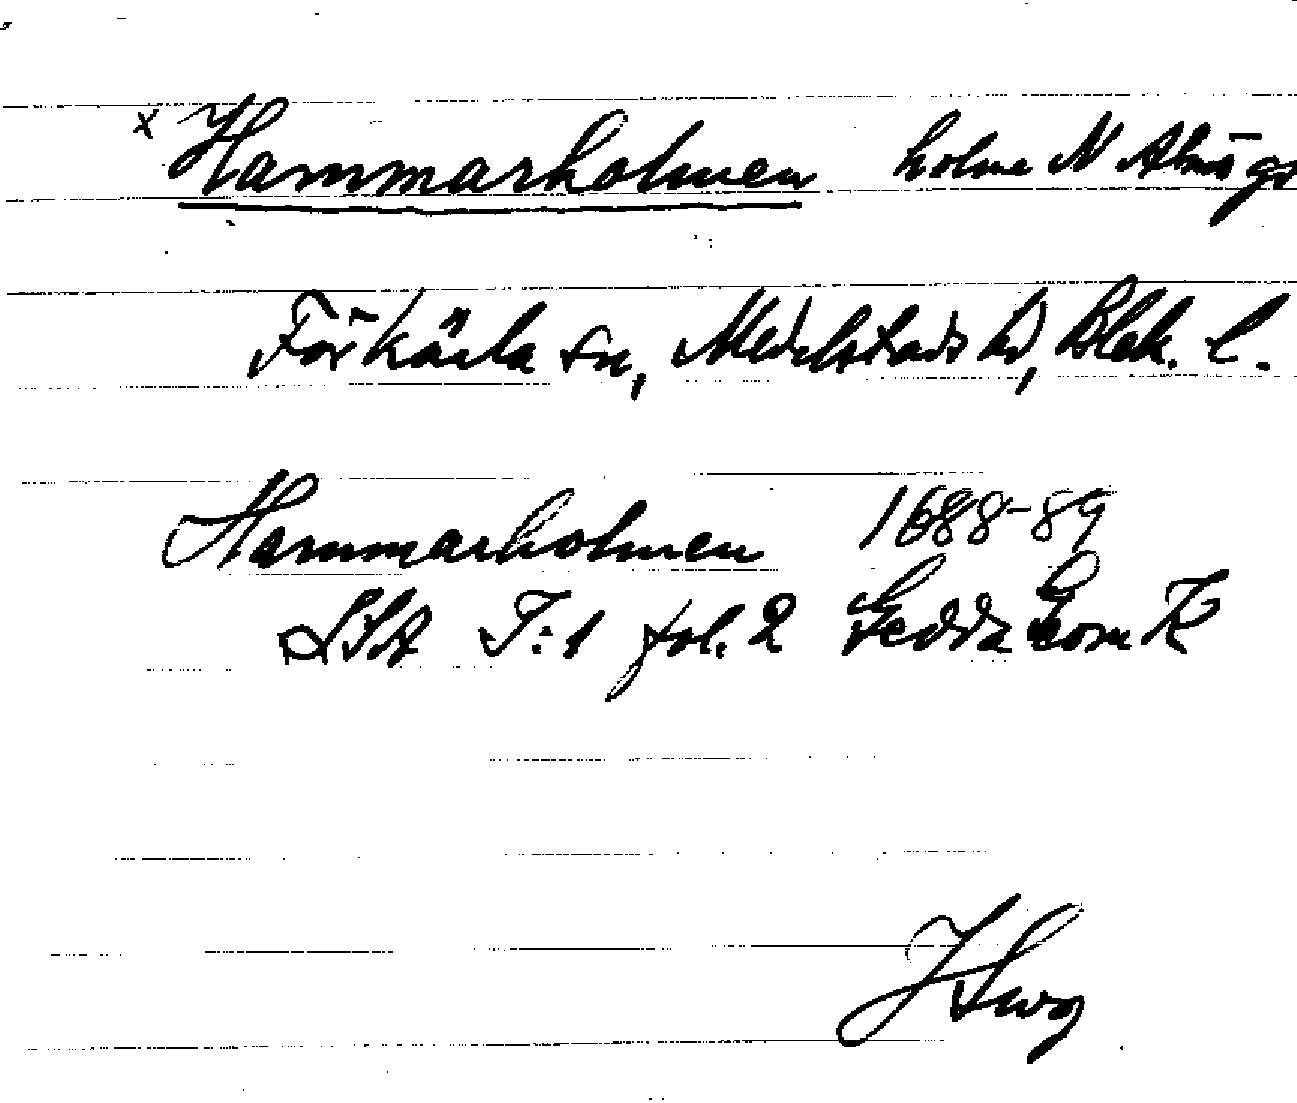 x Hammarholmen holme N Almö gs
Förkärla sn, Medelstads hd, Blek. l.
Hammarholmen 1688-89
LSA T:1 fol. 2 Gedda Kom K